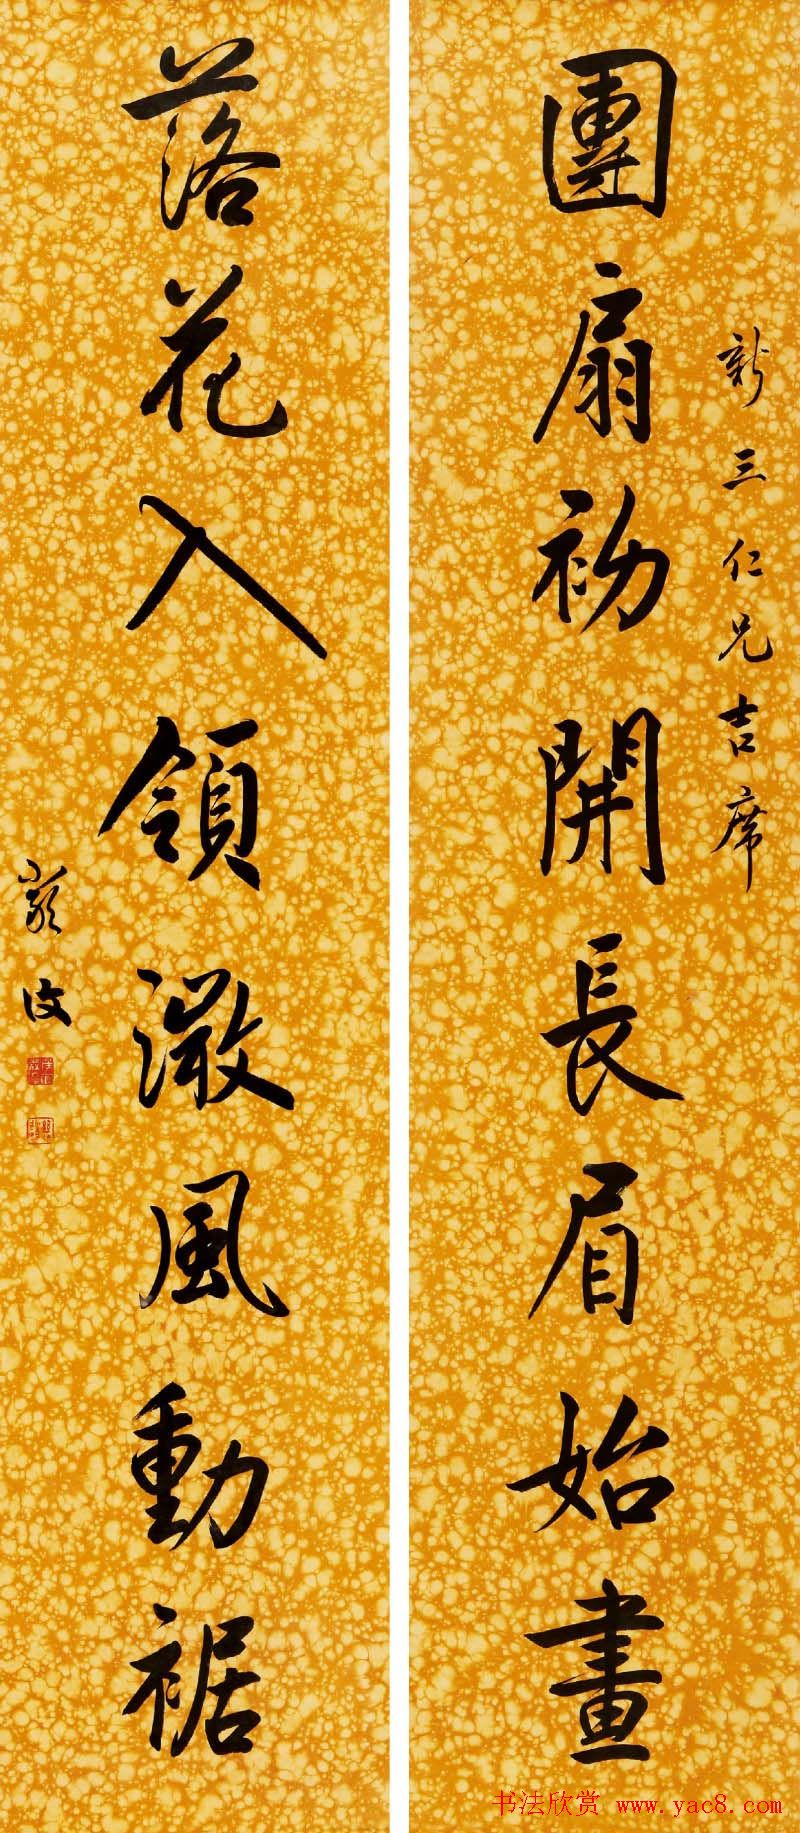 團扇初開長眉始畫
新三仁兄吉席
落花入領微風動裾
嚴修
书法欣赏 www.yac8.com